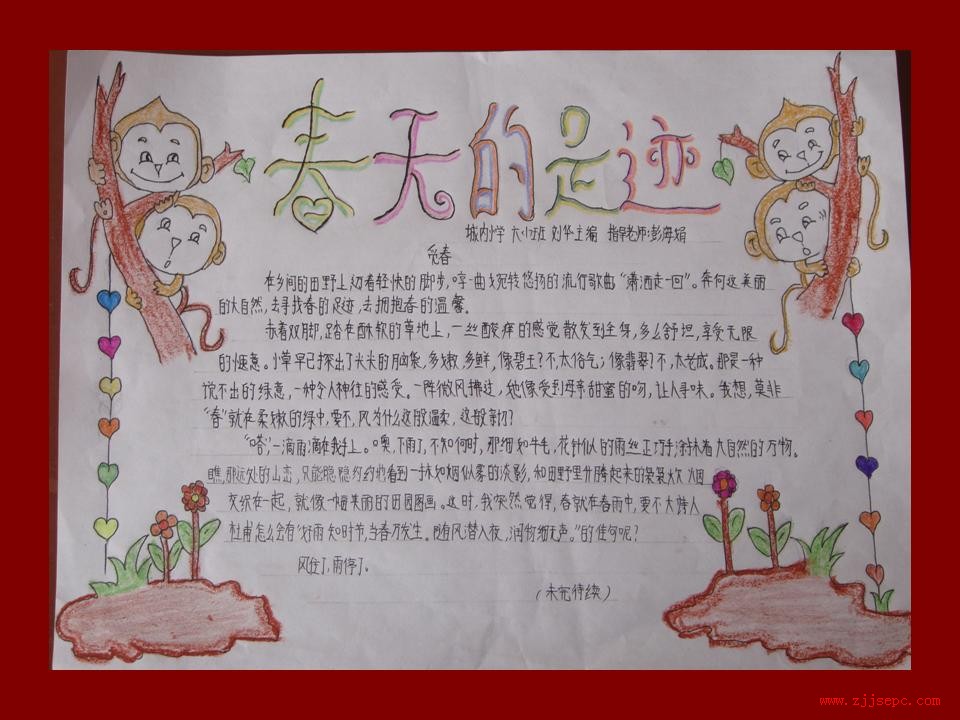 春天的足迹
城内小学 六(2)班 刘华主编 指导老师:彭海娟
觅春
在乡间的田野上迈着轻快的脚步,哼一曲婉转悠扬的流行歌曲“潇洒走一回”。奔向这美丽
的大自然,去寻找春的足迹,去拥抱春的温馨。
赤着双脚,踏在酥软的草地上,一丝酸痒的感觉散发到全身,多么舒坦,享受无限
的惬意。小草早已探出了尖尖的脑袋,多嫩,多鲜,像碧玉?不,太俗气;像翡翠?不,太老成。那是一种
说不出的绿意,一种令人神往的感受。一阵微风拂过,她像受到母亲甜蜜的吻,让人寻味。我想,莫非
“春”就在柔嫩的绿中,要不,风为什么这般温柔,这般亲切?
“嗒”,一滴雨滴在我手上。噢,下雨了,不知何时,那细如牛毛,花针似的雨丝正巧手涂抹着大自然的万物。
瞧,那远处的山峦,只能隐隐约约地看到一抹如烟似雾的淡影,和田野里升腾起来的袅袅炊烟
交织在一起,就像一幅美丽的田园图画。这时,我突然觉得,春就在春雨中,要不大诗人
杜甫怎么会有“好雨知时节,当春乃发生。随风潜入夜,润物细无声。”的佳句呢?
风住了,雨停了。
(未完待续)
www.zjjsepc.com